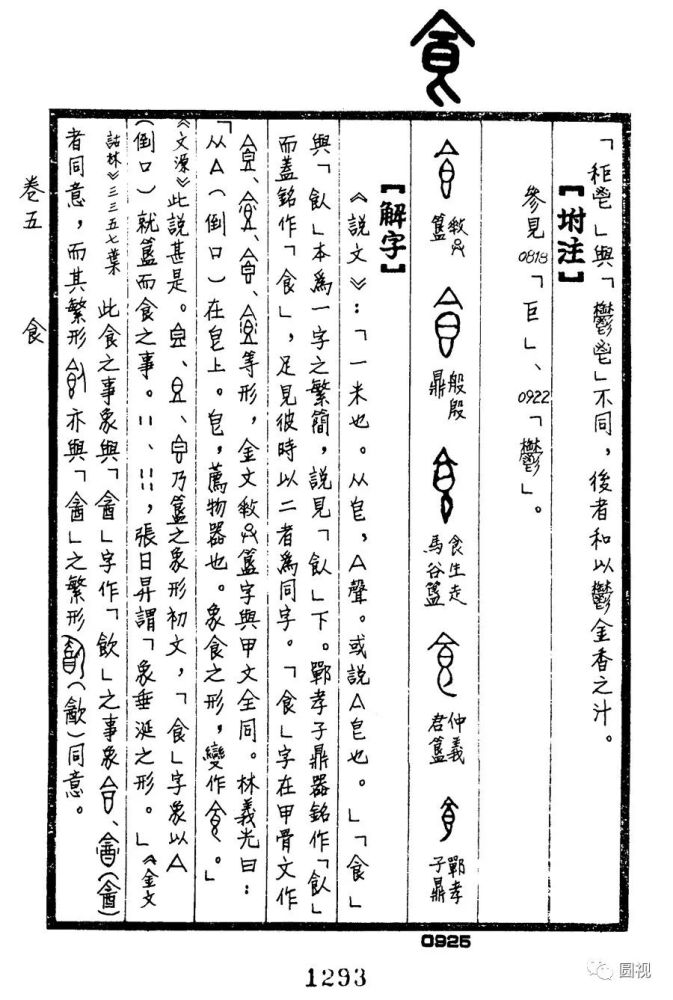 「秬鬯」與「鬱鬯」不同，後者和以鬱金香之汁。
【坿注】
參見0818「巨」、0922「鬱」。
簋
般殷鼎
食生走馬谷簋
仲義君簋
鄲孝子鼎
【解字】
《說文》：「一米也。从皀，亼聲。或說亼皀也。」「食」
與「飤」本為一字之繁簡，說見「飤」下。鄲孝子鼎器銘作「飤」
而蓋銘作「食」，足見彼時以二者為同字。「食」字在甲骨文作
等形，金文簋字與甲文全同。林義光曰：
「从亼（倒口）在皀上。皀，薦物器也。象食之形，變作。」
《文源》此說甚是。乃簋之象形初文，「食」字象以亼
（倒口）就簋而食之事。張日昇謂「象垂涎之形。」《金文
詁林》三三五七葉 此食之事象與「酓」字作「飲」之事象（酓）
者同意，而其繁形亦與「酓」之繁形（歙）同意。
卷五 食
0925
1293
圆视